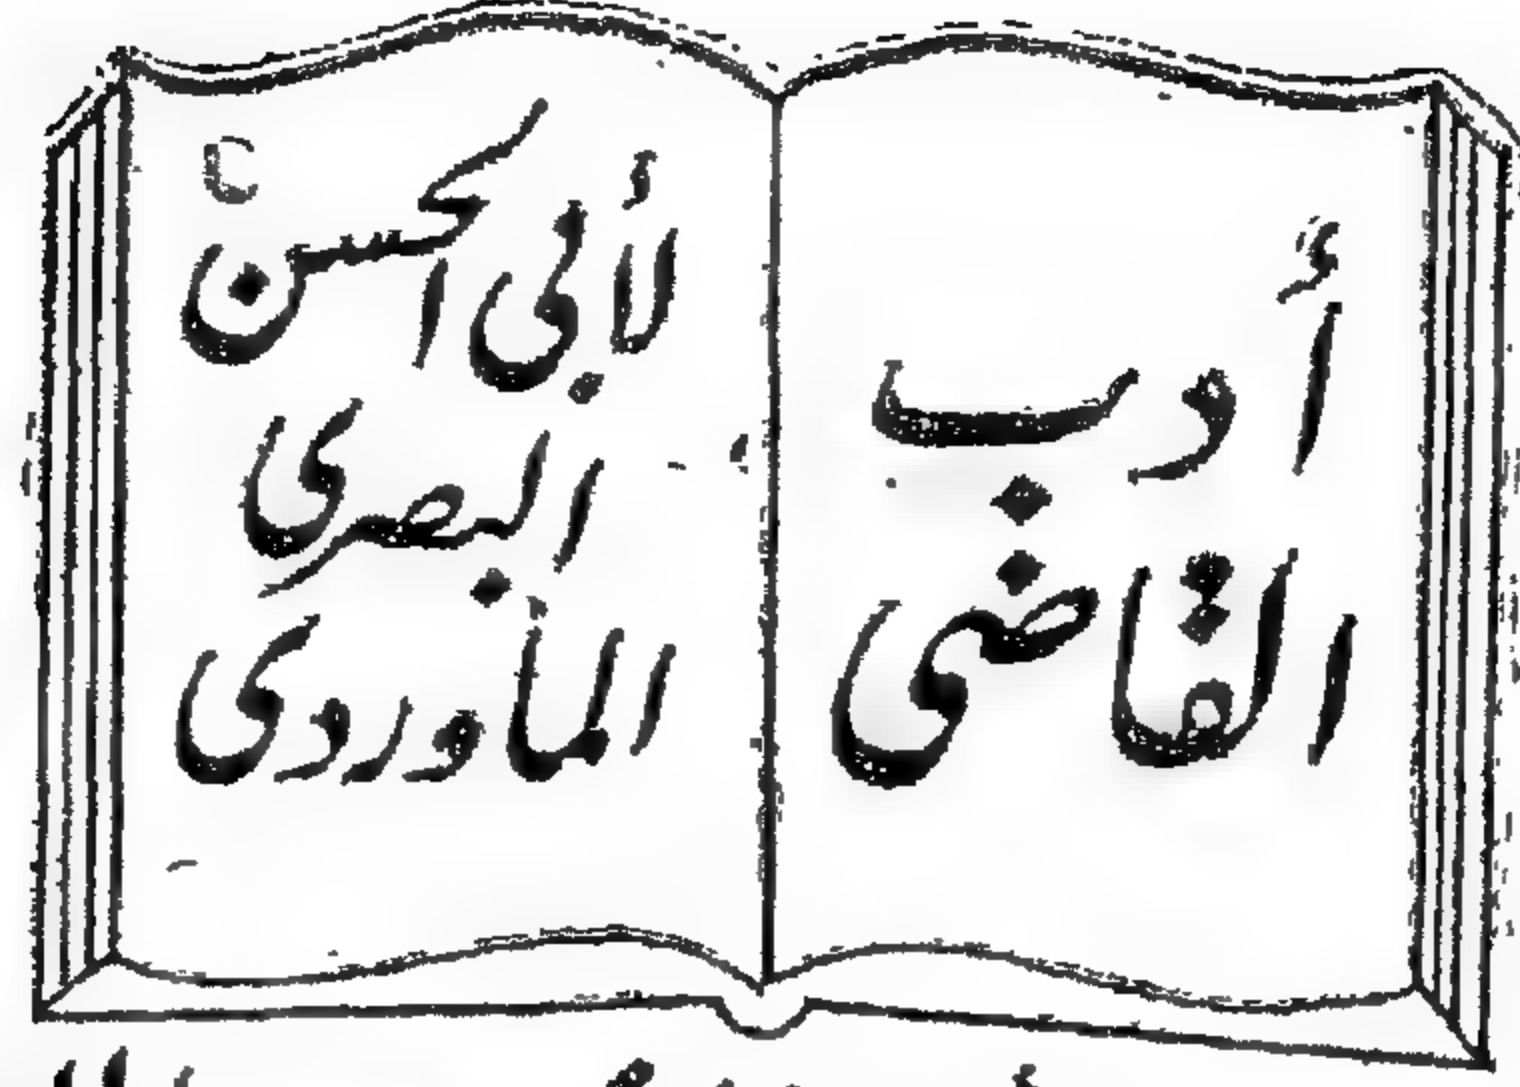 أدب
القاضى
لأبى الحسن
البصرى
الماوردى